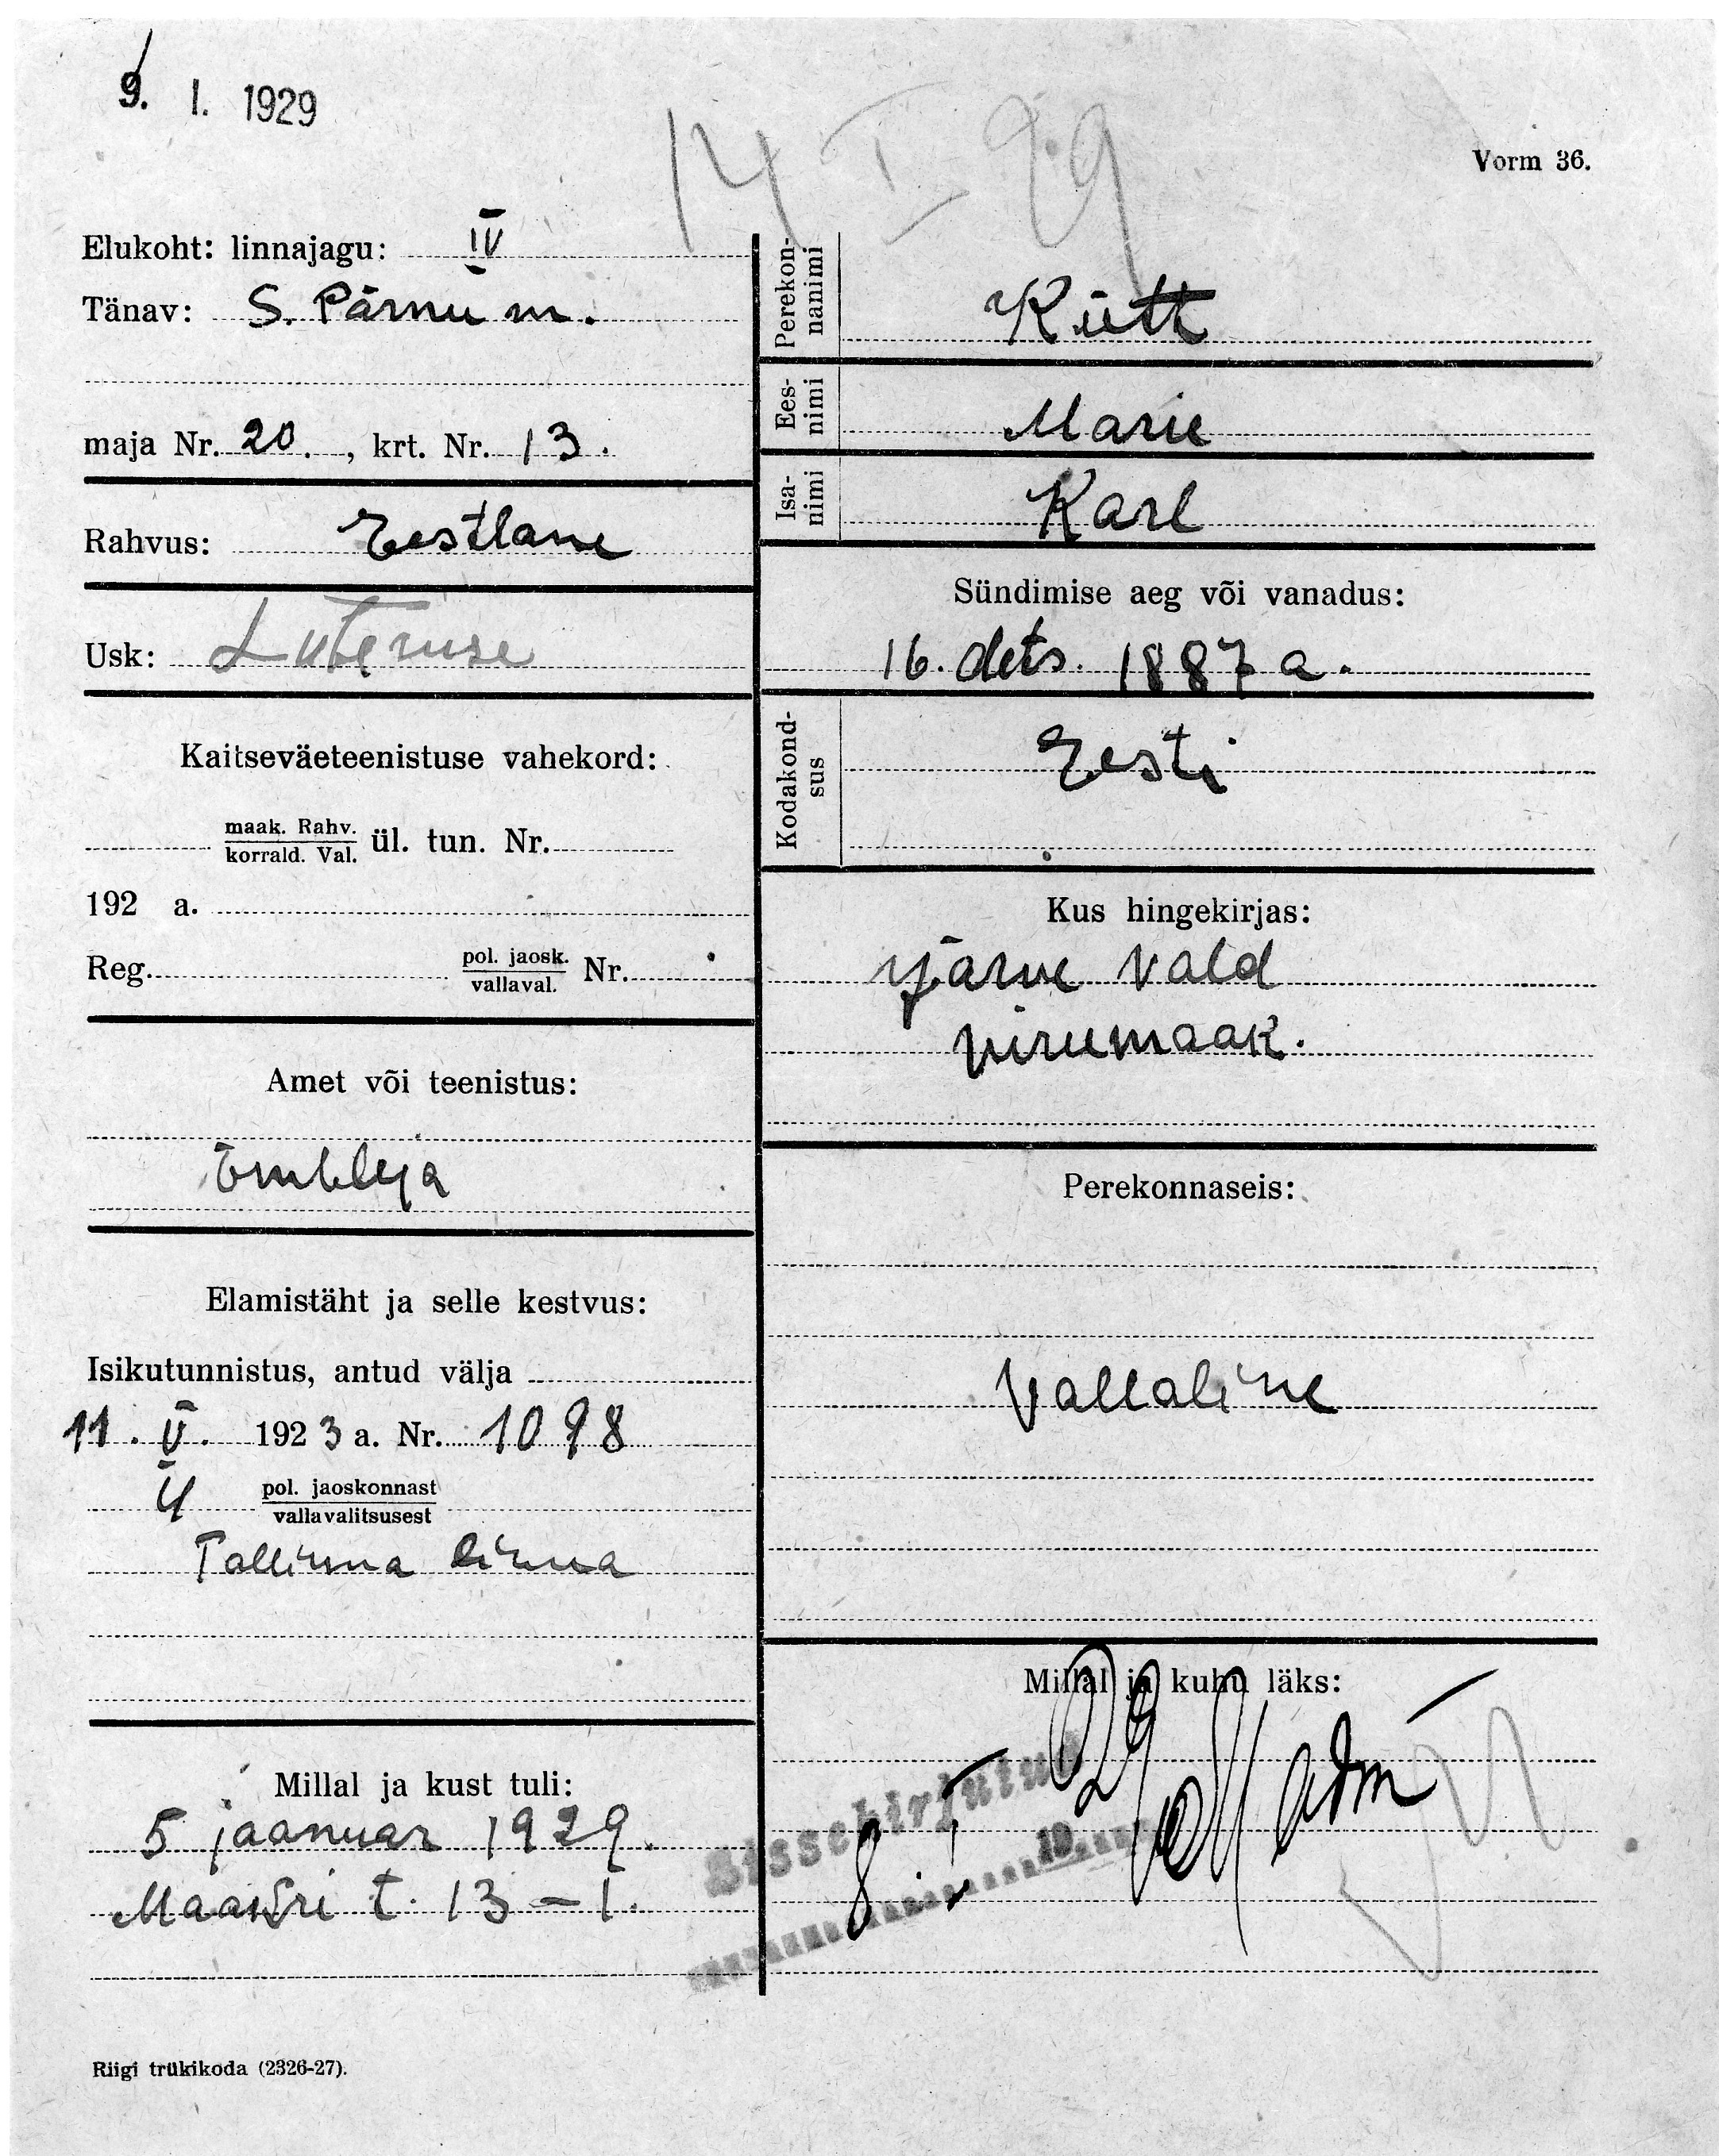 9. I. 1929
14 I 29
Vorm 36.
Elukoht: linnajagu: IV
Tänav: S. Pärnu m.
maja Nr. 20. , krt. Nr. 13.
Rahvus: Eestlane
Usk: Luteruse
Kaitseväeteenistuse vahekord:
maak. Rahv.
korrald. Val. ül. tun. Nr.
192 a.
Reg. pol. jaosk.
vallaval. Nr.
Amet või teenistus:
Õmbleja
Elamistäht ja selle kestvus:
Isikutunnistus, antud välja
11. V. 1923 a. Nr. 1098
pol. jaoskonnast
vallavalitsusest
Tallinna linna
Millal ja kust tuli:
5 jaanuar 1929.
Maakri t. 13 – 1.
Riigi trükikoda (2326-27).
Perekon-
nanimi
Kütt
Ees-
nimi
Marie
Isa-
nimi
Karl
Sündimise aeg või vanadus:
16. dets. 1887 a.
Kodakond-
sus
Eesti
Kus hingekirjas:
Järve vald
Virumaak.
Perekonnaseis:
Vallaline
Millal ja kuhu läks:
Sissekirjutud
19
8. I 29